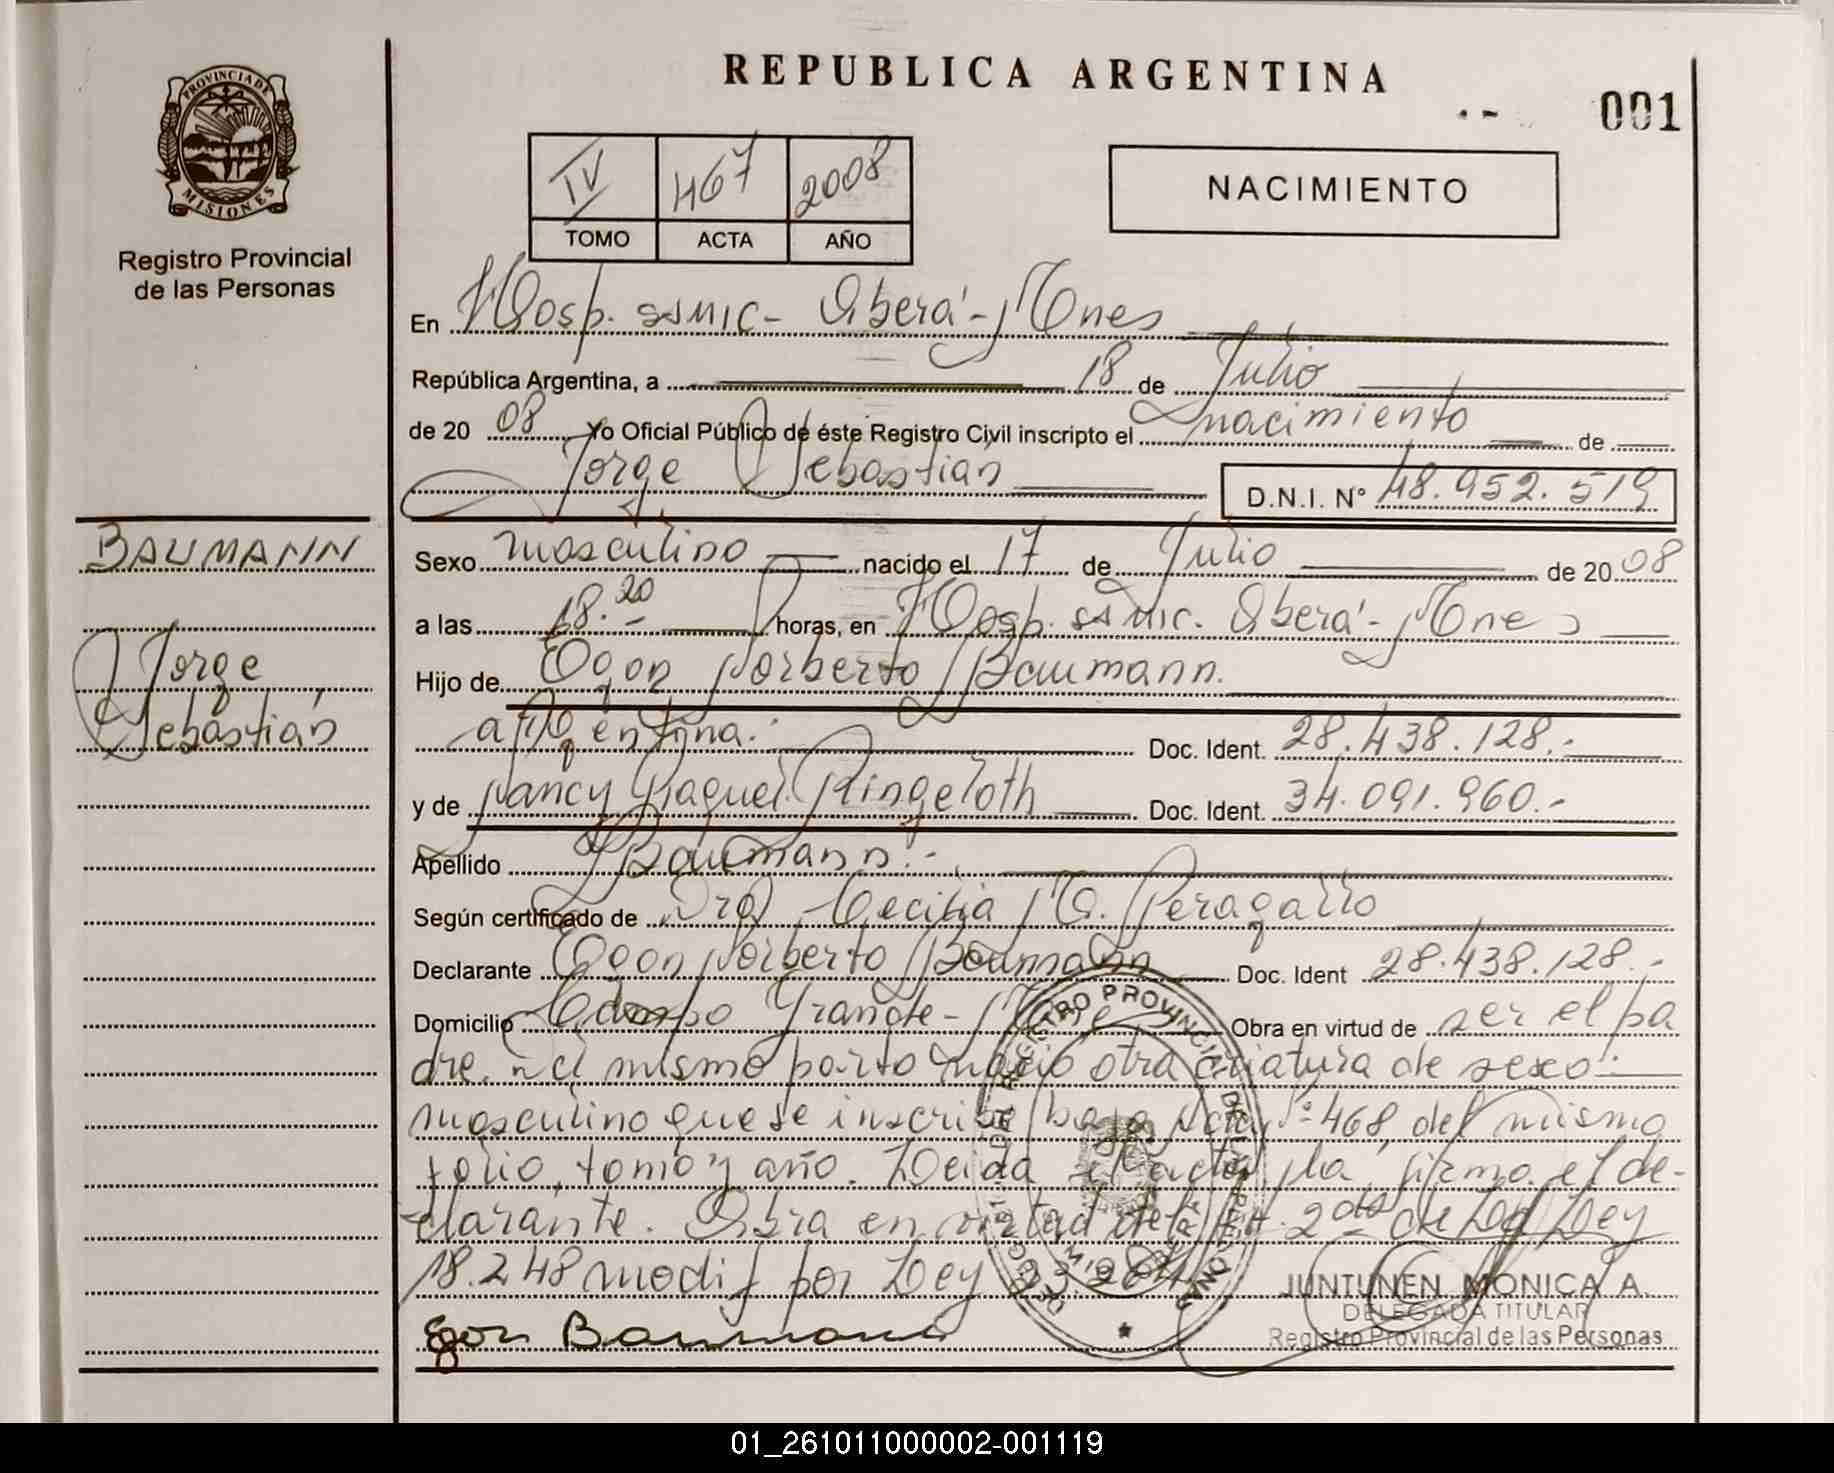 REPUBLICA ARGENTINA
001
PROVINCIA DE
MISIONES
Registro Provincial
de las Personas
IV 467 2008
TOMO ACTA AÑO
NACIMIENTO
En Hosp. SAMIC - Oberá - Mnes
República Argentina, a 18 de Julio
de 20 08 Yo Oficial Público de éste Registro Civil inscripto el nacimiento de
Jorge Sebastián D.N.I. N° 48.952.519
BAUMANN
Jorge
Sebastián
Sexo masculino nacido el 17 de Julio de 20 08
a las 18.20 horas, en Hosp. SAMIC. Oberá - Mnes
Hijo de Egon Norberto Baumann.
argentina. Doc. Ident. 28.438.128.-
y de Nancy Raquel Ringeloth Doc. Ident. 34.091.960.-
Apellido Baumann.-
Según certificado de Dra Cecilia M. Peragallo
Declarante Egon Norberto Baumann Doc. Ident 28.438.128.-
Domicilio Campo Grande - Obra en virtud de ser el pa
dre. Del mismo parto nació otra criatura de sexo
masculino que se inscribe bajo Acta N° 468, del mismo
folio, tomo y año. Leida el acta, la firma el de-
clarante. Obra en virtud del Art. 2do de La Ley
18.248 modif por Ley
Egon Baumann
JUNTUNEN MONICA A.
DELEGADA TITULAR
Registro Provincial de las Personas
01_261011000002-001119